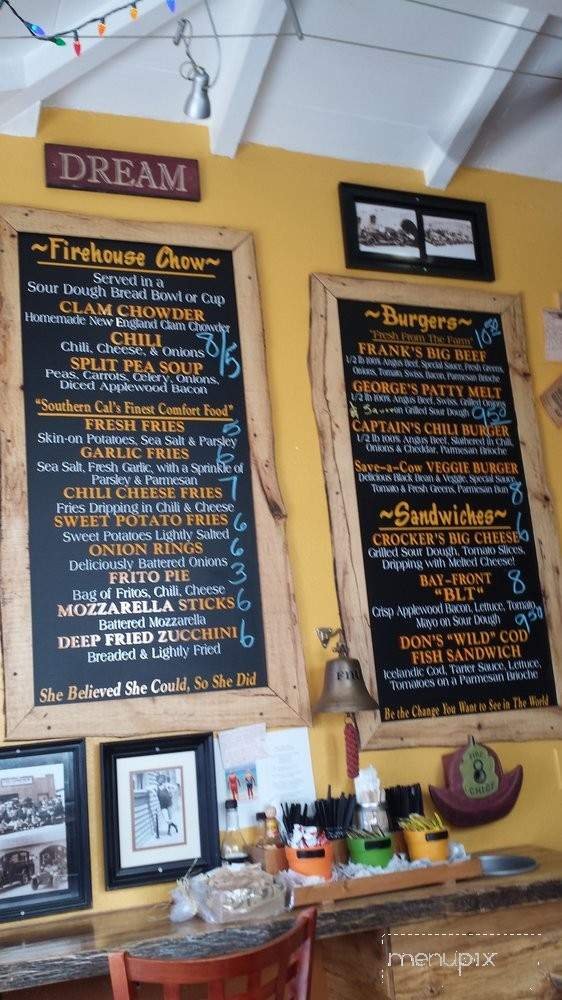 DREAM
~Firehouse Chow~
Served in a
Sour Dough Bread Bowl or Cup
CLAM CHOWDER
Homemade New England Clam Chowder
CHILI 8/5
Chili, Cheese, & Onions
SPLIT PEA SOUP
Peas, Carrots, Celery, Onions,
Diced Applewood Bacon
"Southern Cal's Finest Comfort Food"
FRESH FRIES 5
Skin-on Potatoes, Sea Salt & Parsley
GARLIC FRIES 6
Sea Salt, Fresh Garlic, with a Sprinkle of
Parsley & Parmesan
CHILI CHEESE FRIES 7
Fries Dripping in Chili & Cheese
SWEET POTATO FRIES 6
Sweet Potatoes Lightly Salted
ONION RINGS 6
Deliciously Battered Onions
FRITO PIE 3
Bag of Fritos, Chili, Cheese
MOZZARELLA STICKS 6
Battered Mozzarella
DEEP FRIED ZUCCHINI 6
Breaded & Lightly Fried
She Believed She Could, So She Did
~Burgers~
"Fresh From The Farm" 10.50
FRANK'S BIG BEEF
1/2 lb 100% Angus Beef, Special Sauce, Fresh Greens,
Onions, Tomato, Swiss, Bacon, Parmesan Brioche
GEORGE'S PATTY MELT
1/2 lb 100% Angus Beef, Swiss, Grilled Onions
Grilled Sour Dough 9.50
CAPTAIN'S CHILI BURGER
1/2 lb 100% Angus Beef, Slathered in Chili,
Onions & Cheddar, Parmesan Brioche
Save-a-Cow VEGGIE BURGER
Delicious Black Bean & Veggie, Special Sauce,
Tomato & Fresh Greens, Parmesan Bun 8
~Sandwiches~
CROCKER'S BIG CHEESE 6
Grilled Sour Dough, Tomato Slices,
Dripping with Melted Cheese!
BAY-FRONT 8
"BLT"
Crisp Applewood Bacon, Lettuce, Tomato,
Mayo on Sour Dough 9.50
DON'S "WILD" COD
FISH SANDWICH
Icelandic Cod, Tarter Sauce, Lettuce,
Tomatoes on a Parmesan Brioche
Be the Change You Want to See in The World
FIRE
8
CHIEF
menupix